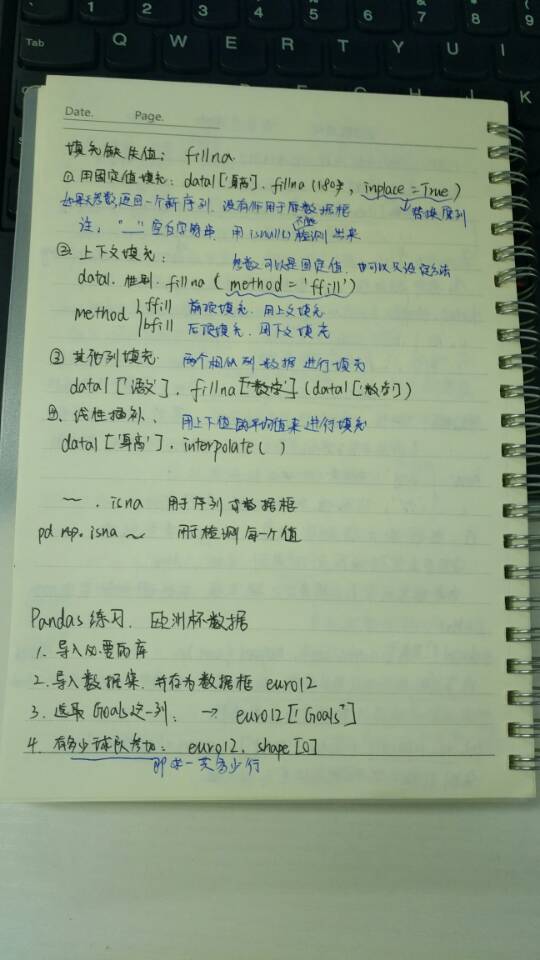 Tab
Q W E R T Y U I
Date. Page.
填充缺失值： fillna
① 用固定值填充：data1['身高'].fillna(180, inplace=True)
如果无参数,返回一个新序列,没有作用于原数据框 替换原列
注："__" 空白字符串 用isnull()不能检测出来
② 上下文填充： 参数可以是固定值,也可以是设定方法
data1.性别.fillna(method='ffill')
method ffill 前项填充,用上文填充
bfill 后项填充,用下文填充
③ 其他列填充 两个相似列数据进行填充
data1['语文'].fillna['数学'](data1['数学'])
④、线性插补、 用上下值的平均值来进行填充
data1['身高'].interpolate( )
~.isna 用于序列或数据框
pd.isna ~ 用于检测每一个值
Pandas练习. 欧洲杯数据
1. 导入必要的库
2. 导入数据集,并存为数据框 euro12
3. 选取Goals这一列: → euro12['Goals']
4. 有多少球队参加: euro12.shape[0]
即求一共多少行